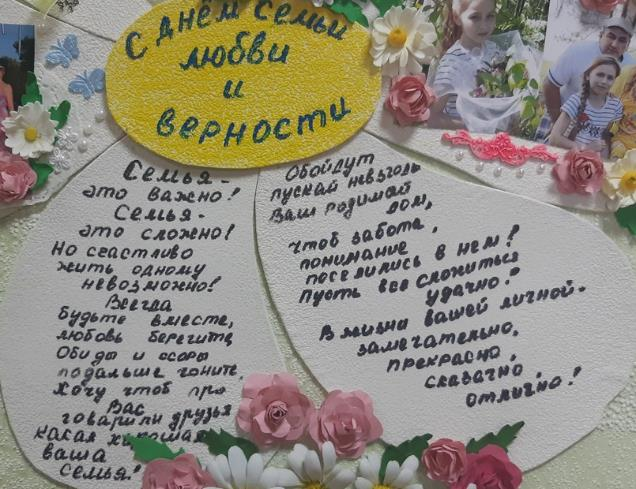 С ДНЁМ СЕМЬИ
ЛЮБВИ
И
ВЕРНОСТИ
Семья -
это важно!
Семья -
это сложно!
Но счастливо
жить одному
невозможно!
Всегда
будьте вместе,
любовь берегите,
Обиды и ссоры
подальше гоните.
Хочу чтоб про
Вас
говорили друзья
Какая хорошая
ваша
семья!
Обойдут
пускай невзгоды
Ваш родимый
дом,
Чтоб забота,
понимание
поселились в нем!
Пусть все сложиться
удачно!
В жизни вашей личной -
замечательно,
прекрасно,
сказачно,
отлично!